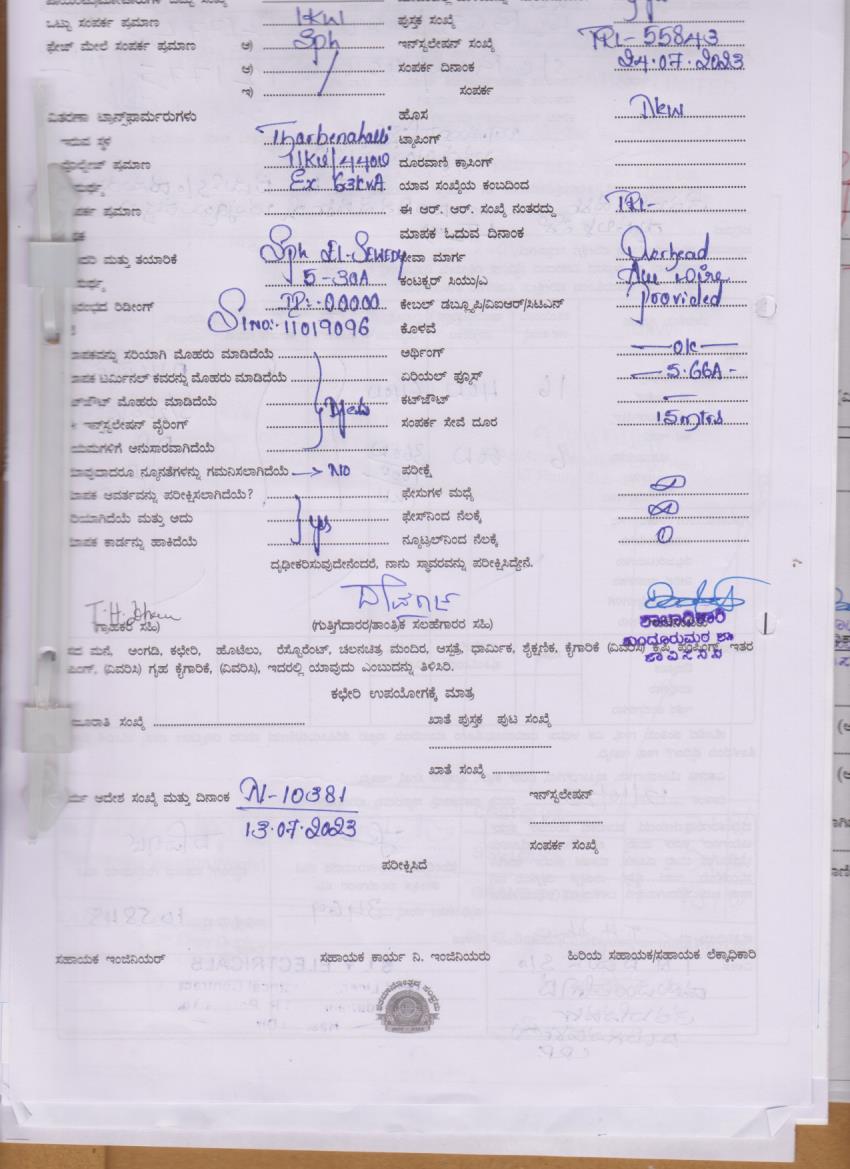 ಒಟ್ಟು ಸಂಪರ್ಕ ಪ್ರಮಾಣ 1KW ಪುಸ್ತಕ ಸಂಖ್ಯೆ
ಫೇಜ್ ಮೇಲೆ ಸಂಪರ್ಕ ಪ್ರಮಾಣ ಅ) Sph ಇನ್‌ಸ್ಟಲೇಷನ್ ಸಂಖ್ಯೆ TRI-55843
ಆ) ಸಂಪರ್ಕ ದಿನಾಂಕ 24.07.2023
ಇ) ಸಂಪರ್ಕ
ವಿತರಣಾ ಟ್ರಾನ್ಸ್‌ಫಾರ್ಮರುಗಳು ಹೊಸ New
ಇರುವ ಸ್ಥಳ Tharbenahalli ಟ್ಯಾಪಿಂಗ್
ಪ್ರಮಾಣ 11KV/440V ದೂರವಾಣಿ ಕ್ರಾಸಿಂಗ್
Ex 63KVA ಯಾವ ಸಂಖ್ಯೆಯ ಕಂಬದಿಂದ
ಪ್ರಮಾಣ ಈ ಆರ್. ಆರ್. ಸಂಖ್ಯೆ ನಂತರದ್ದು TRI-
ಮಾಪಕ ಓದುವ ದಿನಾಂಕ
ಮತ್ತು ತಯಾರಿಕೆ Sph El-Sewedy ಸೇವಾ ಮಾರ್ಗ Overhead
5-30A ಕಂಟಕ್ಟರ್ ಸಿಯು/ಎ Alu wire
ರಿಡೀಂಗ್ IR:-00000 ಕೇಬಲ್ ಡಬ್ಲ್ಯೂಪಿ/ವಿಐಆರ್/ಸಿಟಿಎನ್ provided
Sl No:-11019096 ಕೊಳವೆ
ಸರಿಯಾಗಿ ಮೊಹರು ಮಾಡಿದೆಯೆ ಅರ್ಥಿಂಗ್ -OK-
ಟರ್ಮಿನಲ್ ಕವರನ್ನು ಮೊಹರು ಮಾಡಿದೆಯೆ ಏರಿಯಲ್ ಫ್ಯೂಸ್ -5.66A-
ಮೊಹರು ಮಾಡಿದೆಯೆ ಕಟ್‌ಔಟ್ -
ಇನ್‌ಸ್ಟಲೇಷನ್ ವೈರಿಂಗ್ ಸಂಪರ್ಕ ಸೇವೆ ದೂರ 15mtrs
ಅನುಸಾರವಾಗಿದೆಯೆ
ಯಾವುದಾದರೂ ನ್ಯೂನತೆಗಳನ್ನು ಗಮನಿಸಲಾಗಿದೆಯೆ → NO ಪರೀಕ್ಷೆ
ಆವರ್ತವನ್ನು ಪರೀಕ್ಷಿಸಲಾಗಿದೆಯೆ? ಫೇಸುಗಳ ಮಧ್ಯೆ ∞
ಮತ್ತು ಅದು yes ಫೇಸ್‌ನಿಂದ ನೆಲಕ್ಕೆ ∞
ಕಾರ್ಡನ್ನು ಹಾಕಿದೆಯೆ ನ್ಯೂಟ್ರಲ್‌ನಿಂದ ನೆಲಕ್ಕೆ 0
ದೃಢೀಕರಿಸುವುದೇನೆಂದರೆ, ನಾನು ಸ್ಥಾವರವನ್ನು ಪರೀಕ್ಷಿಸಿದ್ದೇನೆ.
(ಗ್ರಾಹಕರ ಸಹಿ) (ಗುತ್ತಿಗೆದಾರರ/ತಾಂತ್ರಿಕ ಸಲಹೆಗಾರರ ಸಹಿ) ಶಾಖಾಧಿಕಾರಿ
ಮನೆ, ಅಂಗಡಿ, ಕಛೇರಿ, ಹೊಟೆಲು, ರೆಸ್ಟೊರೆಂಟ್, ಚಲನಚಿತ್ರ ಮಂದಿರ, ಆಸ್ಪತ್ರೆ, ಧಾರ್ಮಿಕ, ಶೈಕ್ಷಣಿಕ, ಕೈಗಾರಿಕೆ (ವಿವರಿಸಿ) ಕೃಷಿ ಪಂಪಿಂಗ್, ಇತರ
(ವಿವರಿಸಿ) ಗೃಹ ಕೈಗಾರಿಕೆ, (ವಿವರಿಸಿ), ಇದರಲ್ಲಿ ಯಾವುದು ಎಂಬುದನ್ನು ತಿಳಿಸಿರಿ.
ಕಛೇರಿ ಉಪಯೋಗಕ್ಕೆ ಮಾತ್ರ
ಸಂಖ್ಯೆ ಖಾತೆ ಪುಸ್ತಕ ಪುಟ ಸಂಖ್ಯೆ
ಖಾತೆ ಸಂಖ್ಯೆ
ಆದೇಶ ಸಂಖ್ಯೆ ಮತ್ತು ದಿನಾಂಕ N-10381 ಇನ್‌ಸ್ಟಲೇಷನ್
13.07.2023
ಸಂಪರ್ಕ ಸಂಖ್ಯೆ
ಪರೀಕ್ಷಿಸಿದೆ
ಸಹಾಯಕ ಇಂಜಿನಿಯರ್ ಸಹಾಯಕ ಕಾರ್ಯ ನಿ. ಇಂಜಿನಿಯರು ಹಿರಿಯ ಸಹಾಯಕ/ಸಹಾಯಕ ಲೆಕ್ಕಾಧಿಕಾರಿ